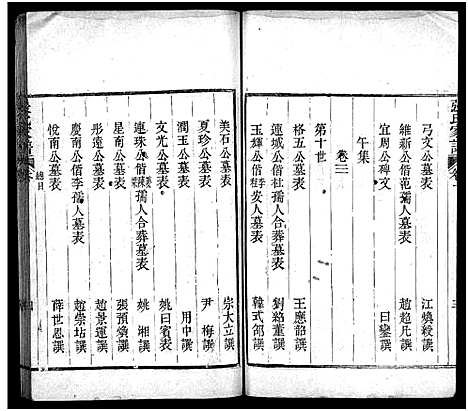 弓文公墓表 江煥綬譔
維新公偕范孺人墓表 趙趁凡譔
宜周公碑文 曰鑾譔
午集
卷三
第十世
格五公墓表 王應詔譔
運城公偕杜孺人墓表 劉綸董譔
玉輝公偕李孺人墓表 韓式郃譔
美石公墓表 宗大立譔
夏珍公墓表 尹梅譔
潤玉公墓表 用中譔
文光公墓表 姚曰賓表
連珠公偕孺人合葬墓表 姚湘譔
星南公墓表 張預煥譔
彤遠公墓表 趙景運譔
慶南公偕李孺人墓表 趙崇坊譔
悅南公墓表 薛世恩譔
總目